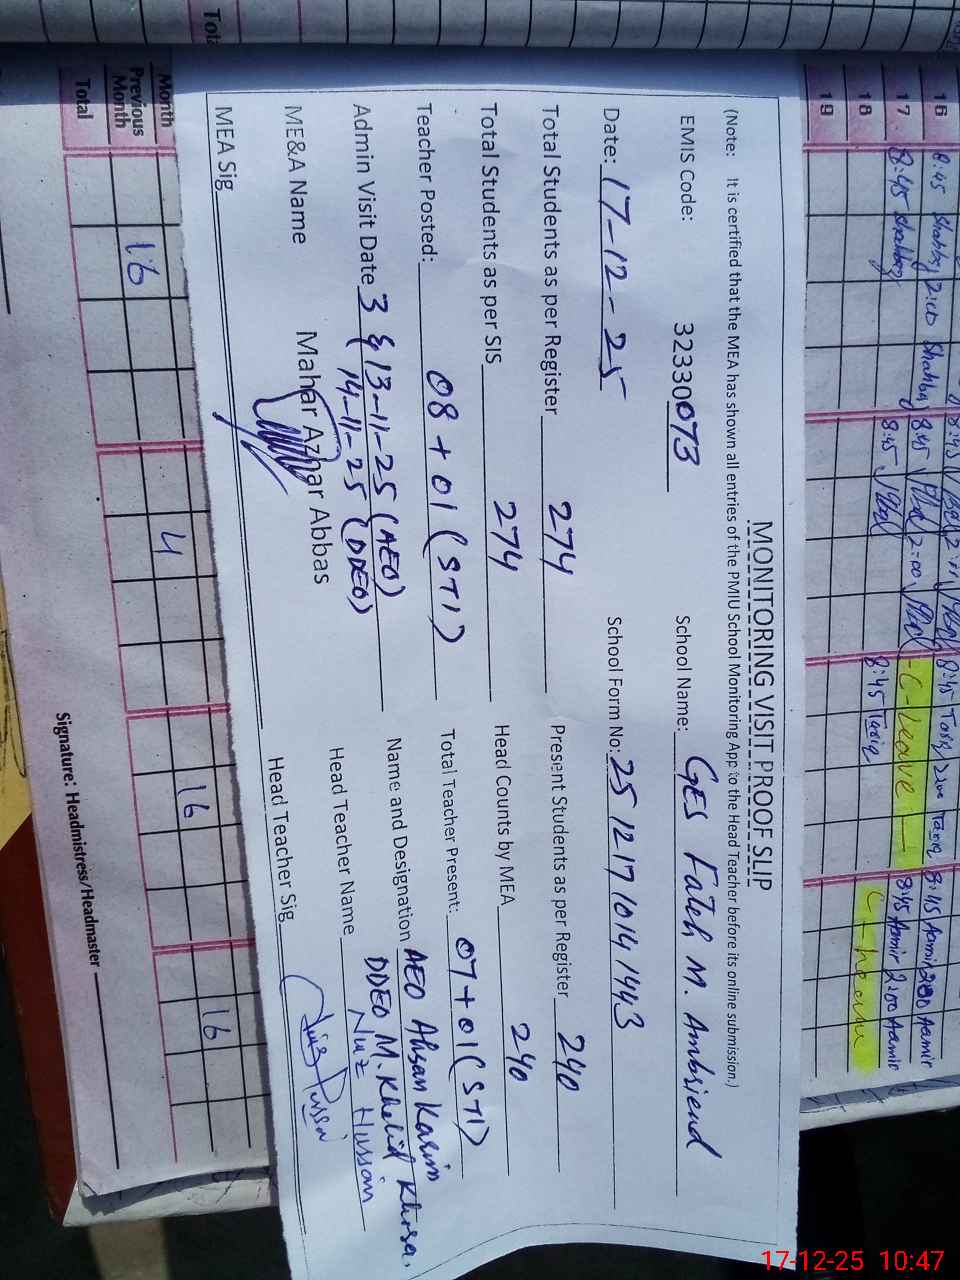 MONITORING VISIT PROOF SLIP
(Note: It is certified that the MEA has shown all entries of the PMIU School Monitoring App to the Head Teacher before its online submission.)
EMIS Code: 32330073 School Name: GES Fateh M. Ambrieud
Date: 17-12-25 School Form No: 25 12 17 1014 1443
Total Students as per Register 274 Present Students as per Register 240
Total Students as per SIS 274 Head Counts by MEA 240
Teacher Posted: 08 + 01 (STI) Total Teacher Present: 07 + 01 (STI)
Admin Visit Date 3 & 13-11-25 (AEO) Name and Designation AEO Ahsan Karim
14-11-25 (DDEO) DDEO M. Khalid Khosa.
ME&A Name Mahar Azhar Abbas Head Teacher Name Niaz Hussain
MEA Sig Head Teacher Sig
16 8:45 2:00 8:45 8:45 Tariq 2:00 Tariq 8:45 Aamir 2:00 Aamir
17 8:45 8:45 2:00 C-Leave 8:45 Aamir 2:00 Aamir
18 8:45 8:45 8:45 Tariq
19
Month 4 16 16
Previous Month 16
Total
Signature: Headmistress/Headmaster
17-12-25 10:47